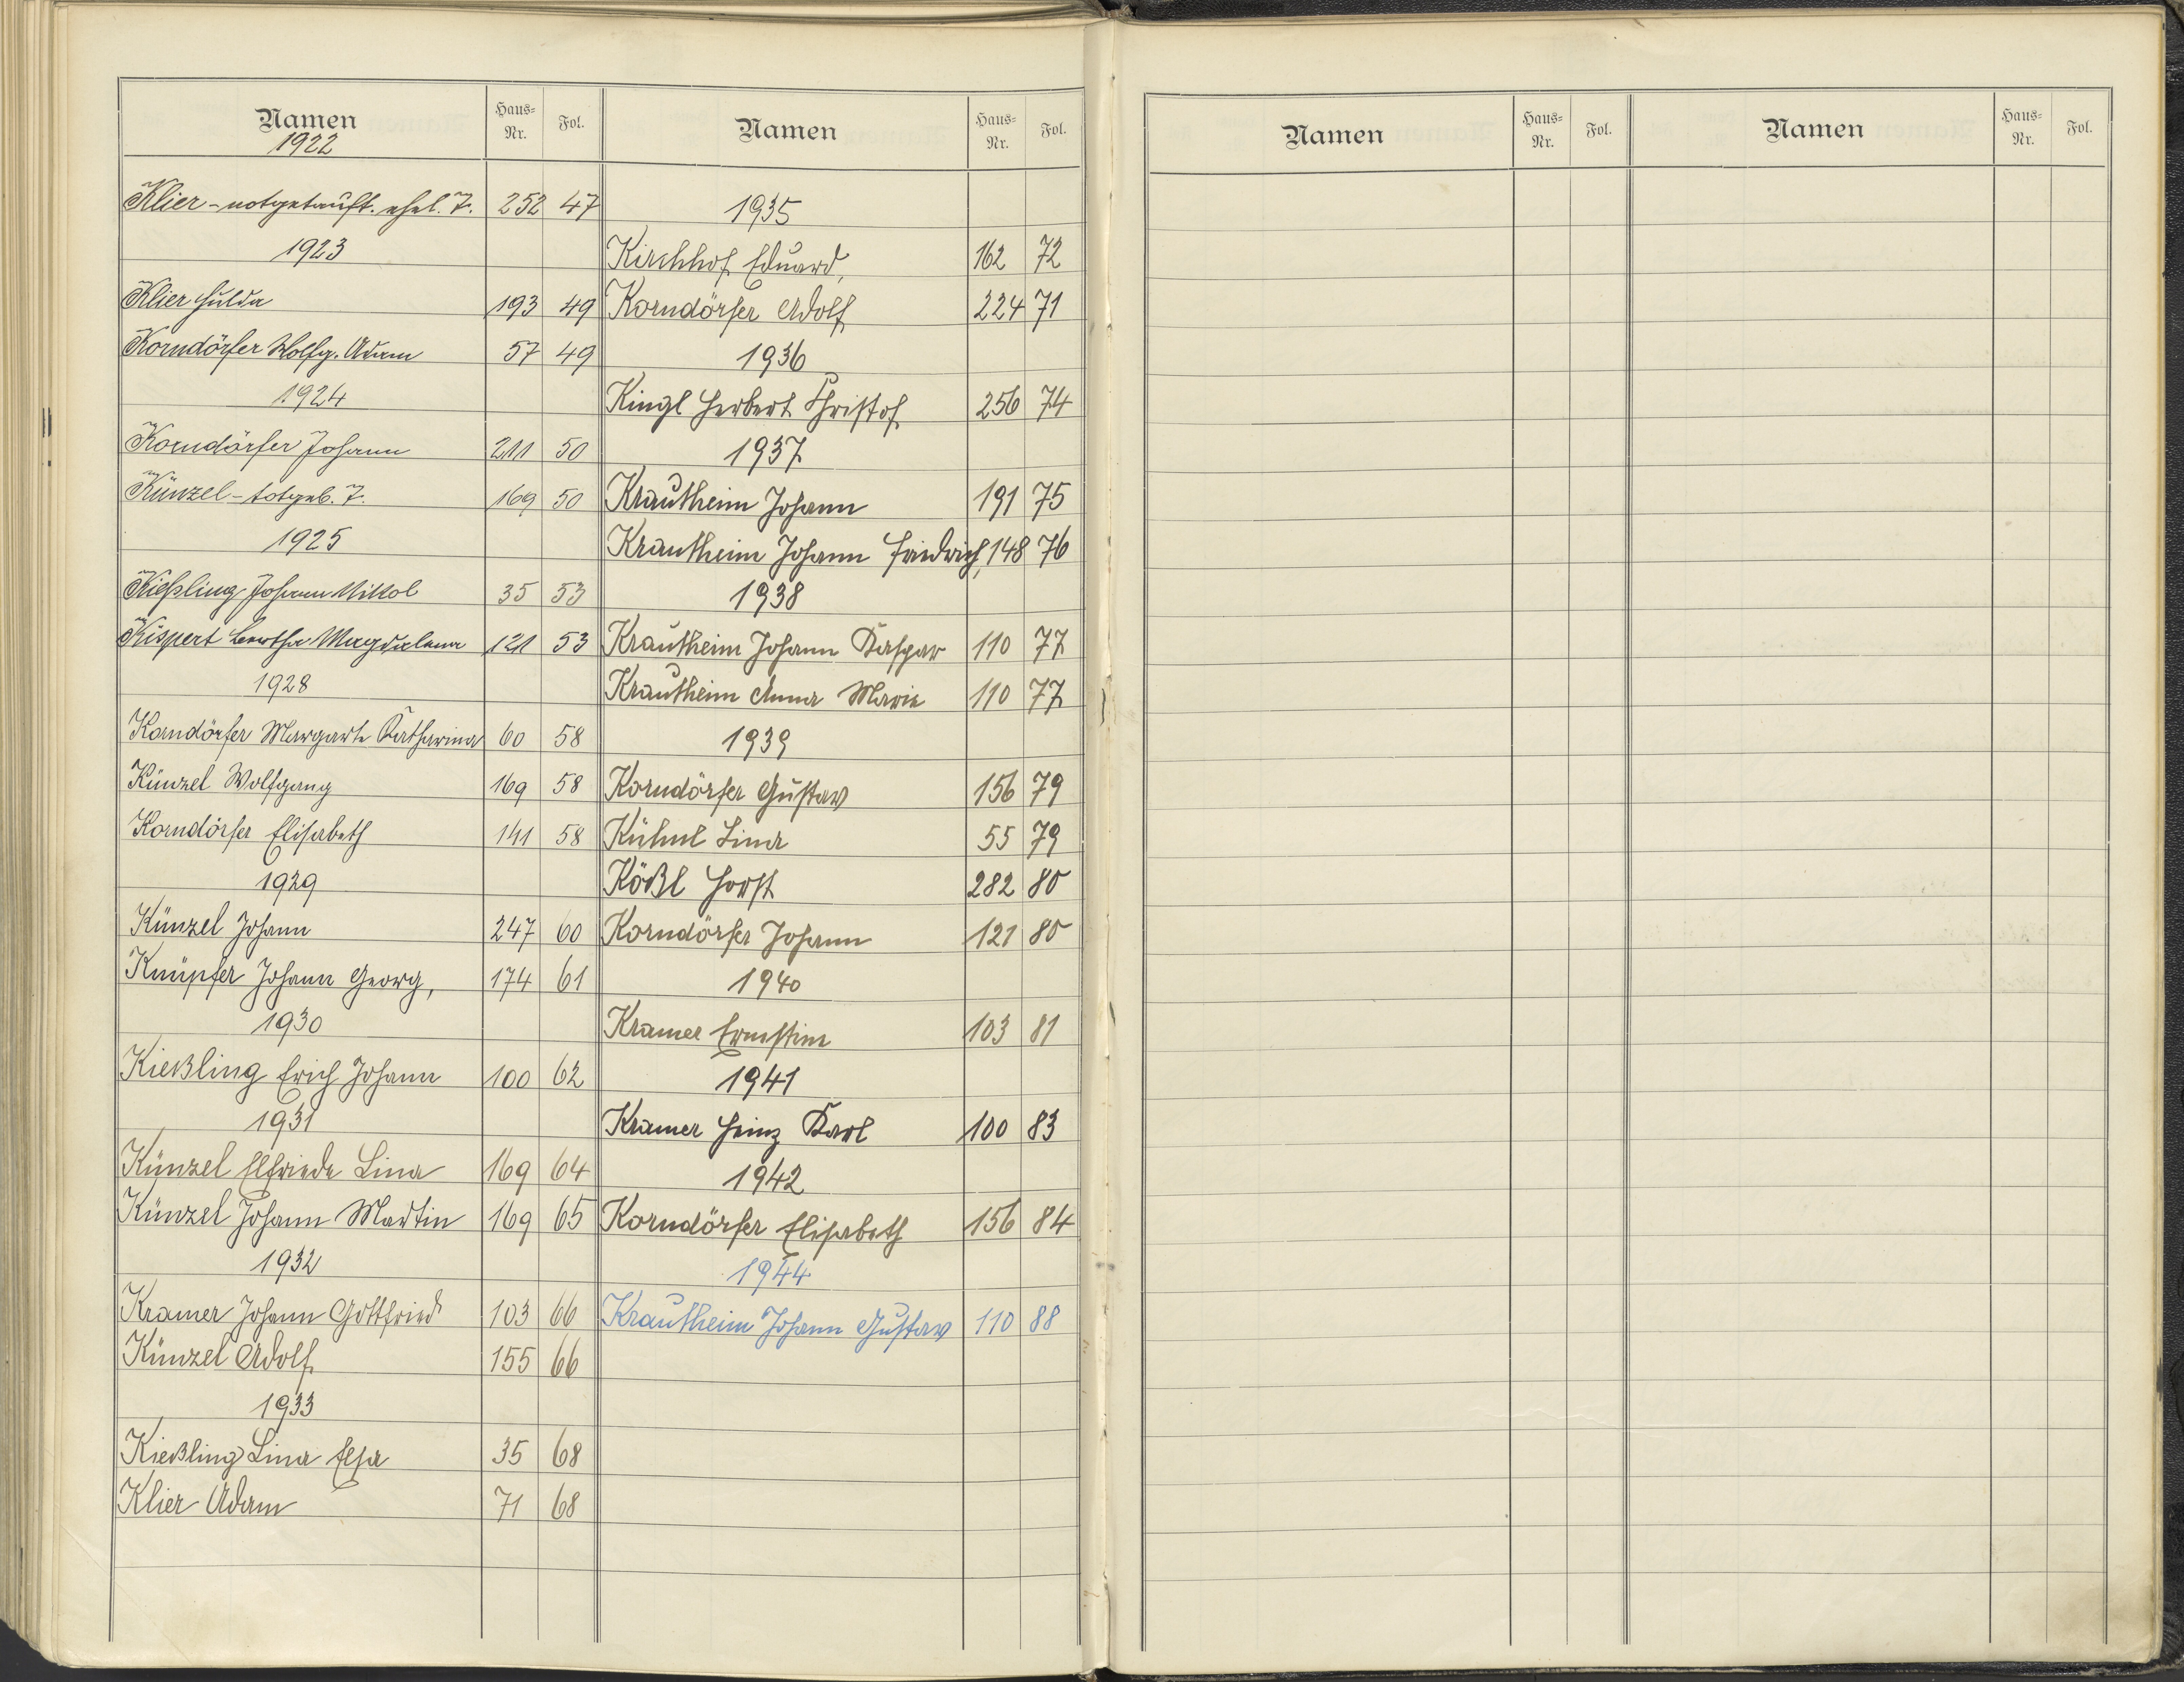 Namen Haus-Nr. Fol.
1922
Klier - notgetauft. ehel. T. 252 47
1923
Klier Hulda 193 49
Korndörfer Wolfg. Adam 57 49
1924
Korndörfer Johann 211 50
Künzel - totgeb. T. 169 50
1925
Kießling Johann Nikol 35 53
Kispert Bertha Magdalena 121 53
1928
Korndörfer Margarte Katharina 60 58
Künzel Wolfgang 169 58
Korndörfer Elisabeth 141 58
1929
Künzel Johann 247 60
Knüpfer Johann Georg, 174 61
1930
Kießling Erich Johann 100 62
1931
Künzel Elfriede Lina 169 64
Künzel Johann Martin 169 65
1932
Kramer Johann Gottfried 103 66
Künzel Adolf 155 66
1933
Kießling Lina Elsa 35 68
Klier Adam 71 68
Namen Haus-Nr. Fol.
1935
Kirchhof Eduard, 162 72
Korndörfer Adolf 224 71
1936
Kingl Herbert Christof 256 74
1937
Krautheim Johann 191 75
Krautheim Johann Friedrich, 148 76
1938
Krautheim Johann Kaspar 110 77
Krautheim Anna Marie 110 77
1939
Korndörfer Gustav 156 79
Kühnl Lina 55 79
Kößl Horst 282 80
Korndörfer Johann 121 80
1940
Kramer Ernstine 103 81
1941
Kramer Heinz Karl 100 83
1942
Korndörfer Elisabeth 156 84
1944
Krautheim Johann Gustav 110 88
Namen Haus-Nr. Fol.
Namen Haus-Nr. Fol.